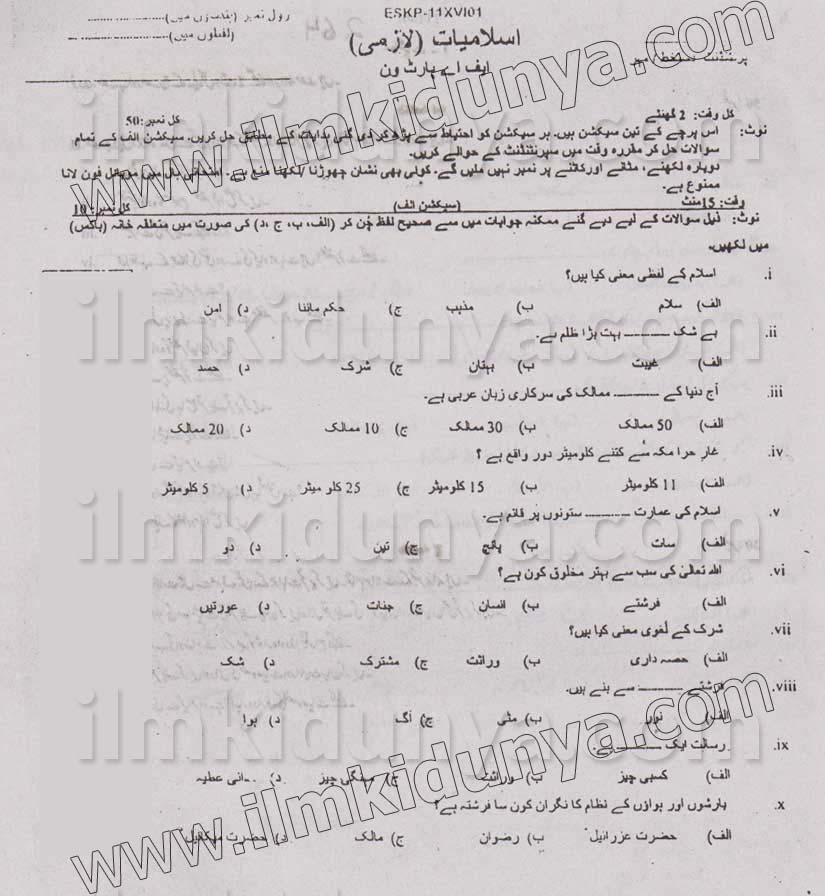 ESKP-11XVI01
رول نمبر (ہندسوں میں)
(لفظوں میں)
اسلامیات (لازمی)
ایف اے پارٹ ون
کل وقت: 2 گھنٹے
کل نمبر: 50
نوٹ: اس پرچے کے تین سیکشن ہیں۔ ہر سیکشن کو احتیاط سے پڑھ کر دی گئی ہدایات کے مطابق حل کریں۔ سیکشن الف کے تمام
سوالات حل کر مقررہ وقت میں سپرنٹنڈنٹ کے حوالے کریں۔
دوبارہ لکھنے، مٹانے اور کاٹنے پر نمبر نہیں ملیں گے۔ کوئی بھی نشان چھوڑنا /لکھنا منع ہے۔ امتحانی ہال میں موبائل فون لانا
ممنوع ہے۔
وقت: 15 منٹ (سیکشن الف) کل نمبر: 10
نوٹ: ذیل سوالات کے لیے دیے گئے ممکنہ جوابات میں سے صحیح لفظ چُن کر (الف، ب، ج، د) کی صورت میں متعلقہ خانہ (باکس)
میں لکھیں۔
i. اسلام کے لفظی معنی کیا ہیں؟
الف) سلام ب) مذہب ج) حکم ماننا د) امن
ii. بے شک ـــــــــــ بہت بڑا ظلم ہے۔
الف) غیبت ب) بہتان ج) شرک د) حسد
iii. آج دنیا کے ـــــــــــ ممالک کی سرکاری زبان عربی ہے۔
الف) 50 ممالک ب) 30 ممالک ج) 10 ممالک د) 20 ممالک
iv. غار حرا مکہ سے کتنے کلومیٹر دور واقع ہے ؟
الف) 11 کلومیٹر ب) 15 کلومیٹر ج) 25 کلو میٹر د) 5 کلومیٹر
v. اسلام کی عمارت ـــــــــــ ستونوں پر قائم ہے۔
الف) سات ب) پانچ ج) تین د) دو
vi. اللہ تعالیٰ کی سب سے بہتر مخلوق کون ہے؟
الف) فرشتے ب) انسان ج) جنات د) عورتیں
vii. شرک کے لغوی معنی کیا ہیں؟
الف) حصہ داری ب) وراثت ج) مشترک د) شک
viii. فرشتے ـــــــــــ سے بنے ہیں۔
الف) نور ب) مٹی ج) آگ د) ہوا
ix. رسالت ایک ـــــــــــ ہے۔
الف) کسبی چیز ب) وراثت ج) مہنگی چیز د) عطیہ
x. بارشوں اور ہواؤں کے نظام کا نگران کون سا فرشتہ ہے؟
الف) حضرت عزرائیل ب) رضوان ج) مالک د) حضرت میکائیل
www.ilmkidunya.com
ilmkidunya.com
ilmkidunya.com
ilmkidunya.com
ilmkidunya.com
www.ilmkidunya.com